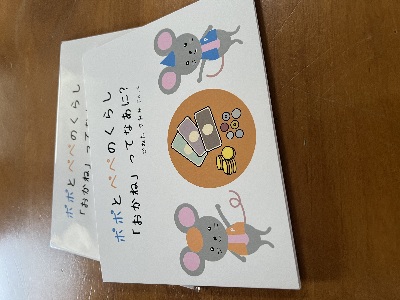 ポポとペペのくらし
「おかね」ってなあに？
ポポとペペのくらし
「おかね」ってな